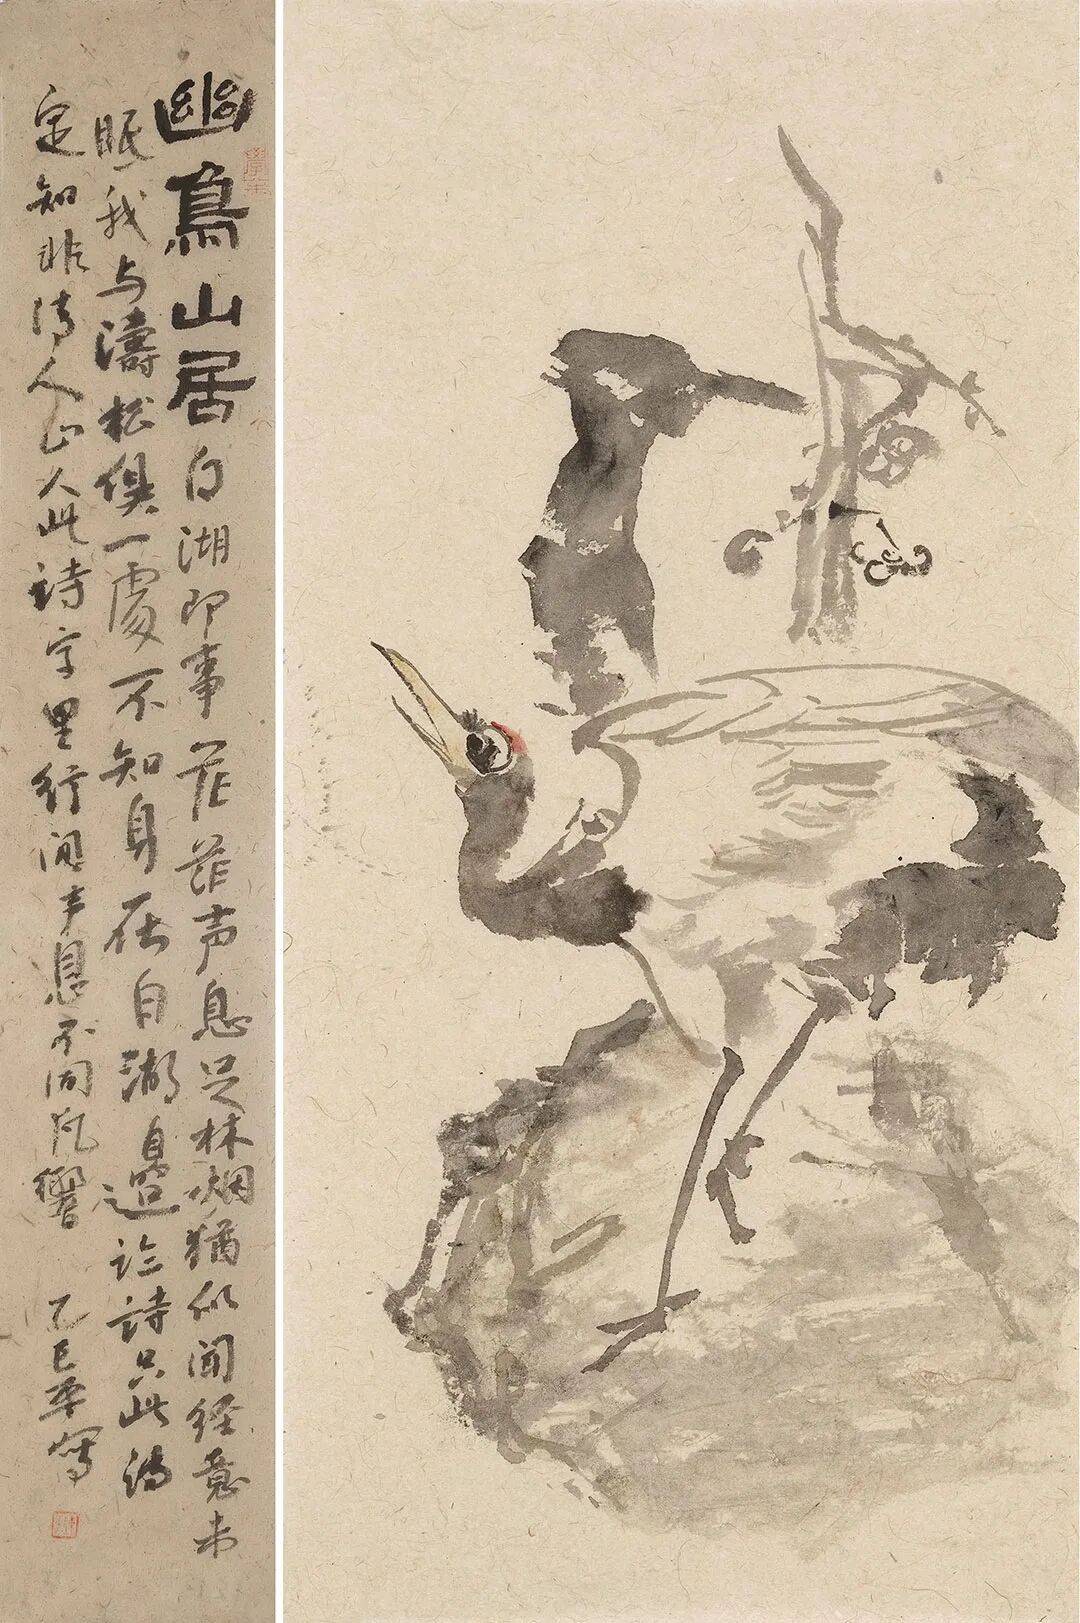 幽鳥山居 白湖即事 茫茫声息足林烟犹似闻经意未
眠我与濤松俱一處不知身在白湖邉论詩只此
定知非人山人此詩字里行间声息不同凡響 乙巳平寫